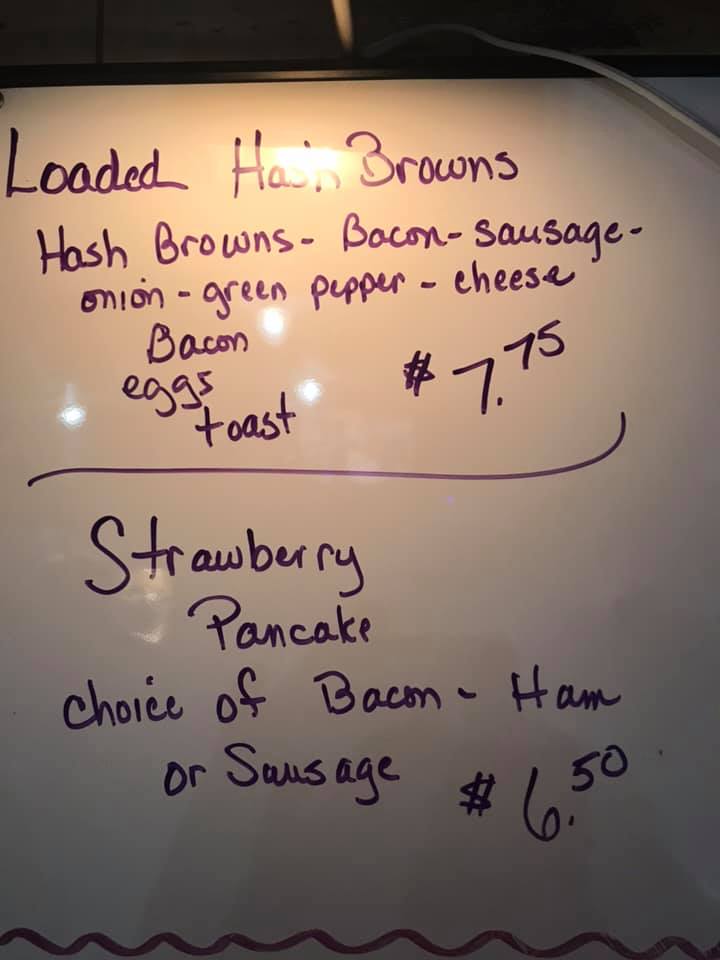 Loaded Hash Browns
Hash Browns - Bacon - sausage -
onion - green pepper - cheese
Bacon
eggs
toast
$ 7.75
Strawberry
Pancake
choice of Bacon - Ham
or Sausage
$ 6.50